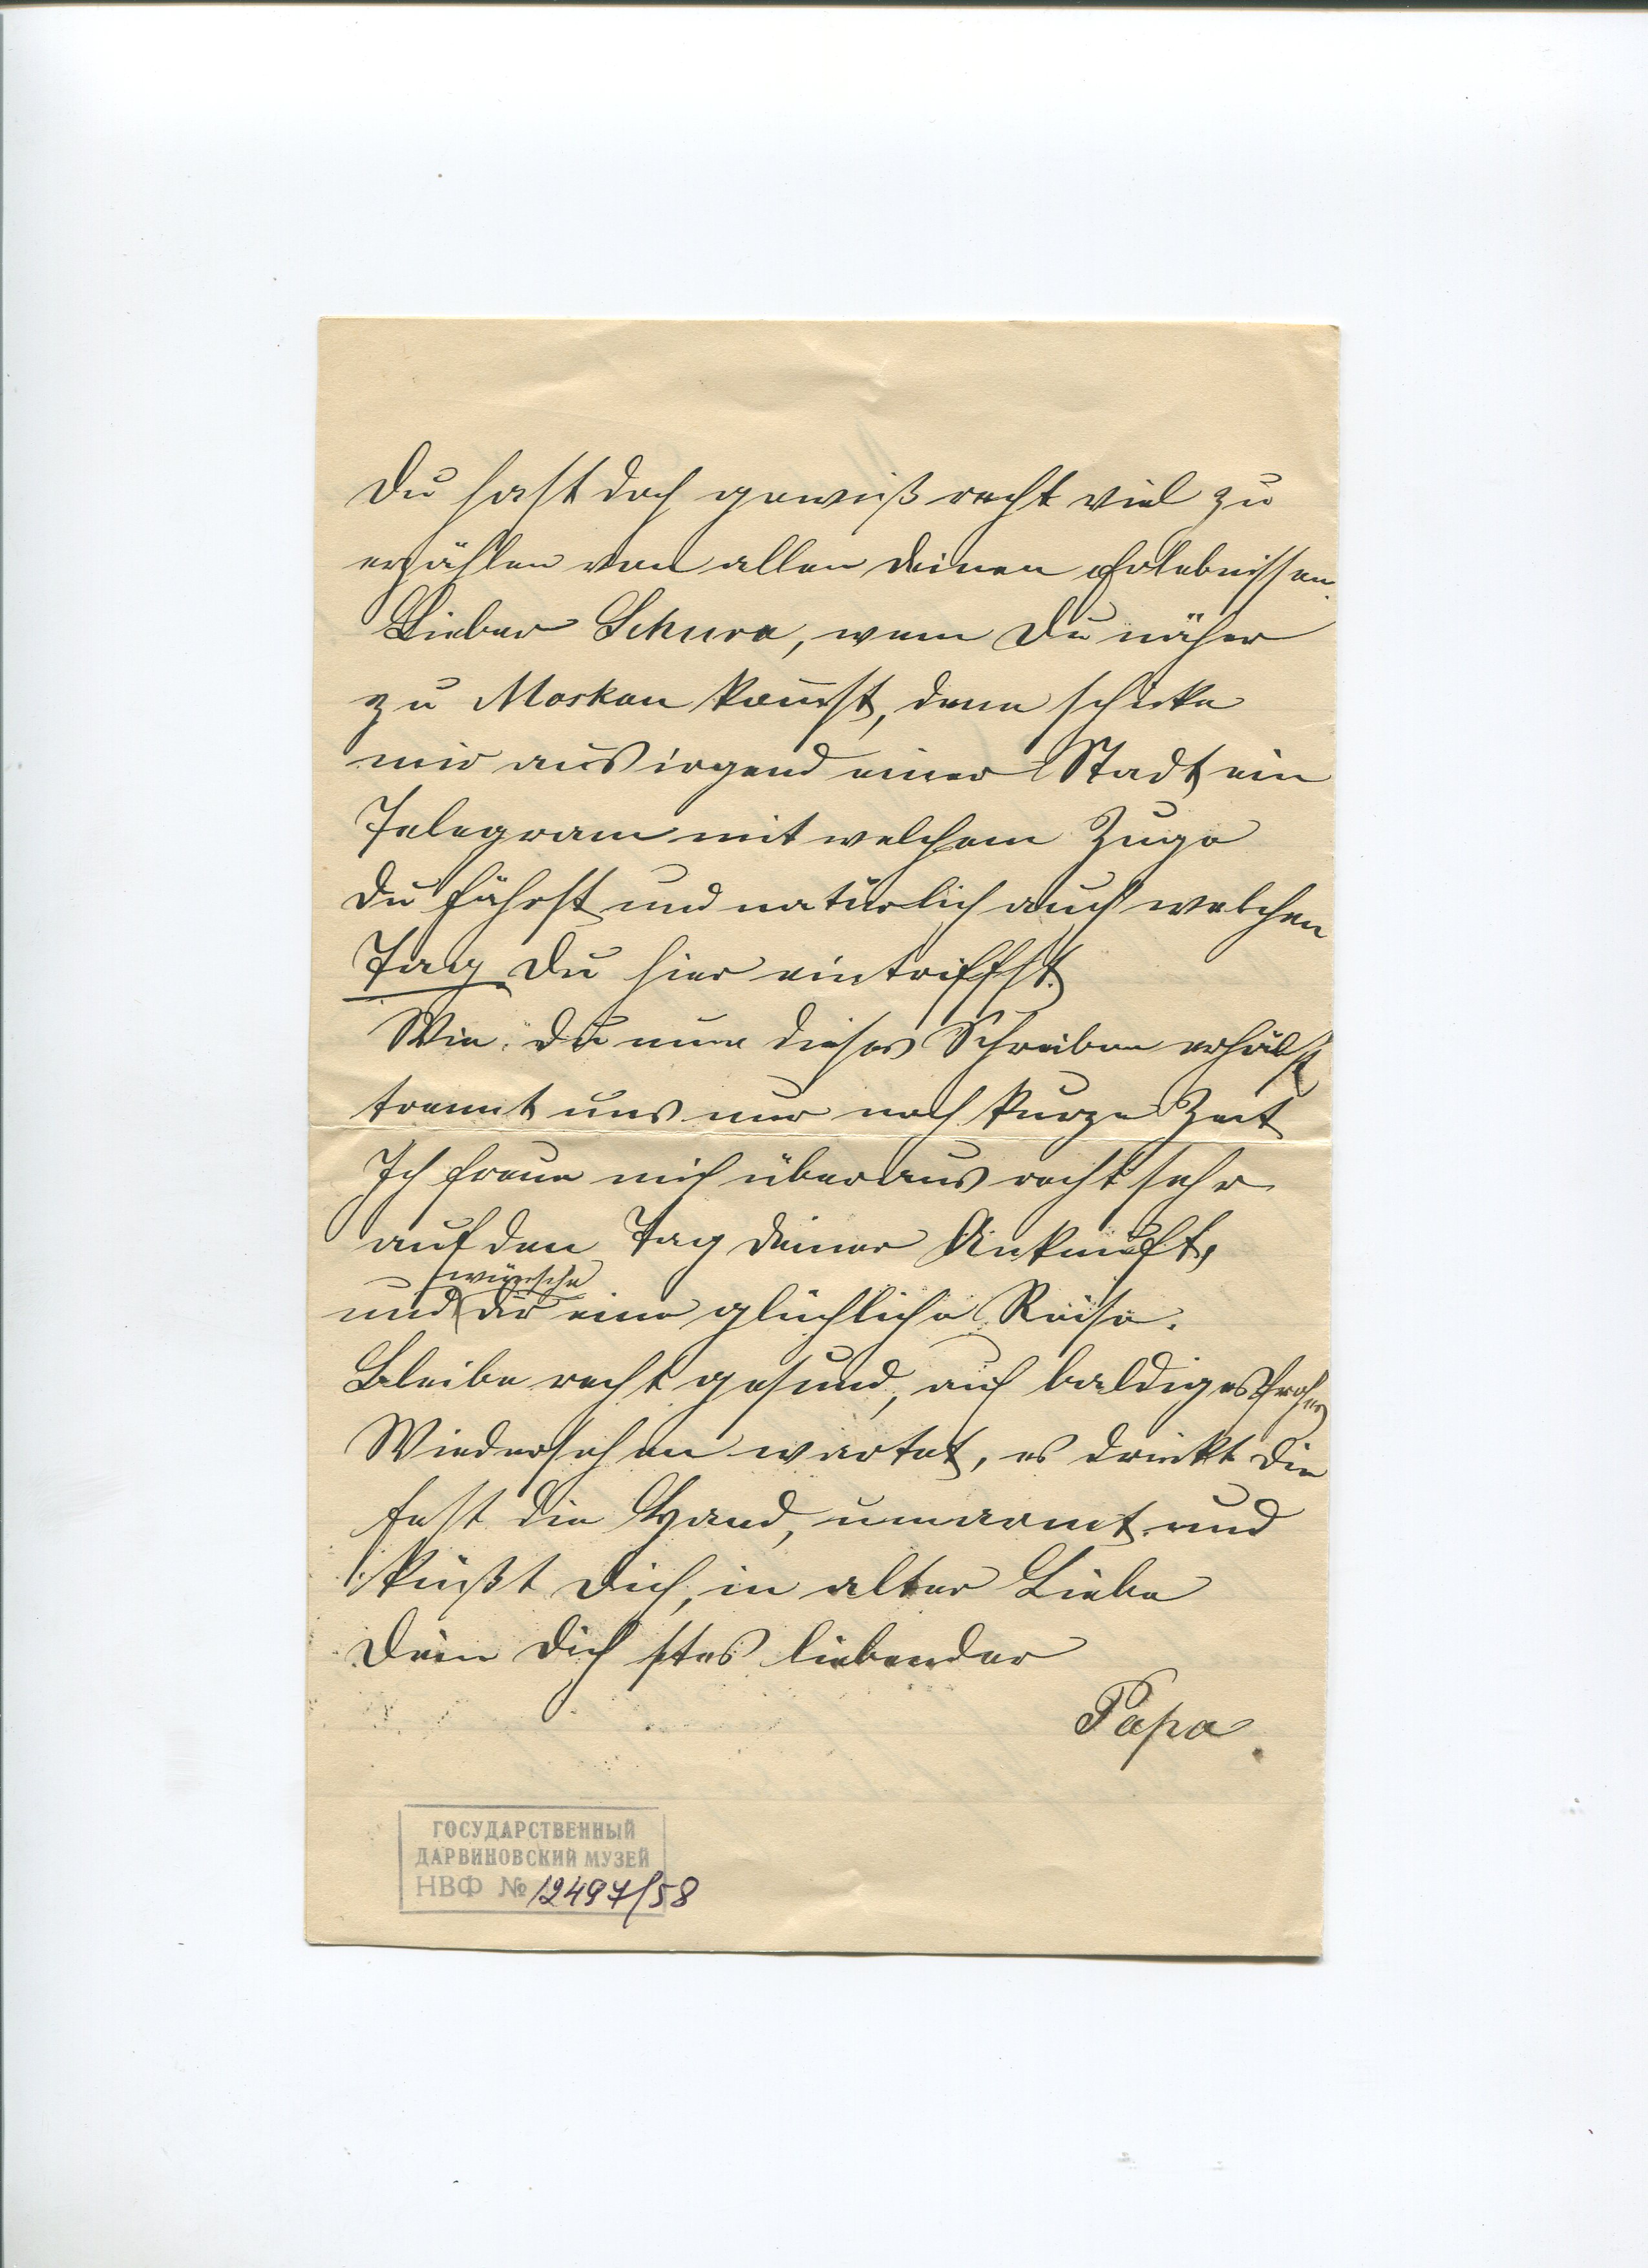 Du hast doch gewiß recht viel zu
erzählen von allen deinen Erlebnissen.
Lieber Schura, wenn Du näher
zu Moskau kom̅st, dann schicke
mir aus irgend einer Stadt ein
Telegram mit welchem Zuge
Du fährst und natürlich auch welchen
Tag Du hier eintriffst.
Wie Du nun dieses Schreiben erhälst
trennt uns nur noch kurze Zeit
Ich freue mich überaus recht sehr
auf den Tag deiner Ankunft,
wünsche
und dir eine glückliche Reise.
Bleibe recht gesund, auf baldiges frohes
Wiedersehen wartet, es drückt Dir
fest die Hand, umarmt und
küßt Dich, in alter Liebe
Dein Dich stes liebender
Papa.
ГОСУДАРСТВЕННЫЙ
ДАРВИНОВСКИЙ МУЗЕЙ
НВФ № 12497/58